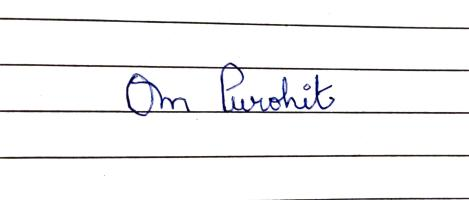 Om Purohit